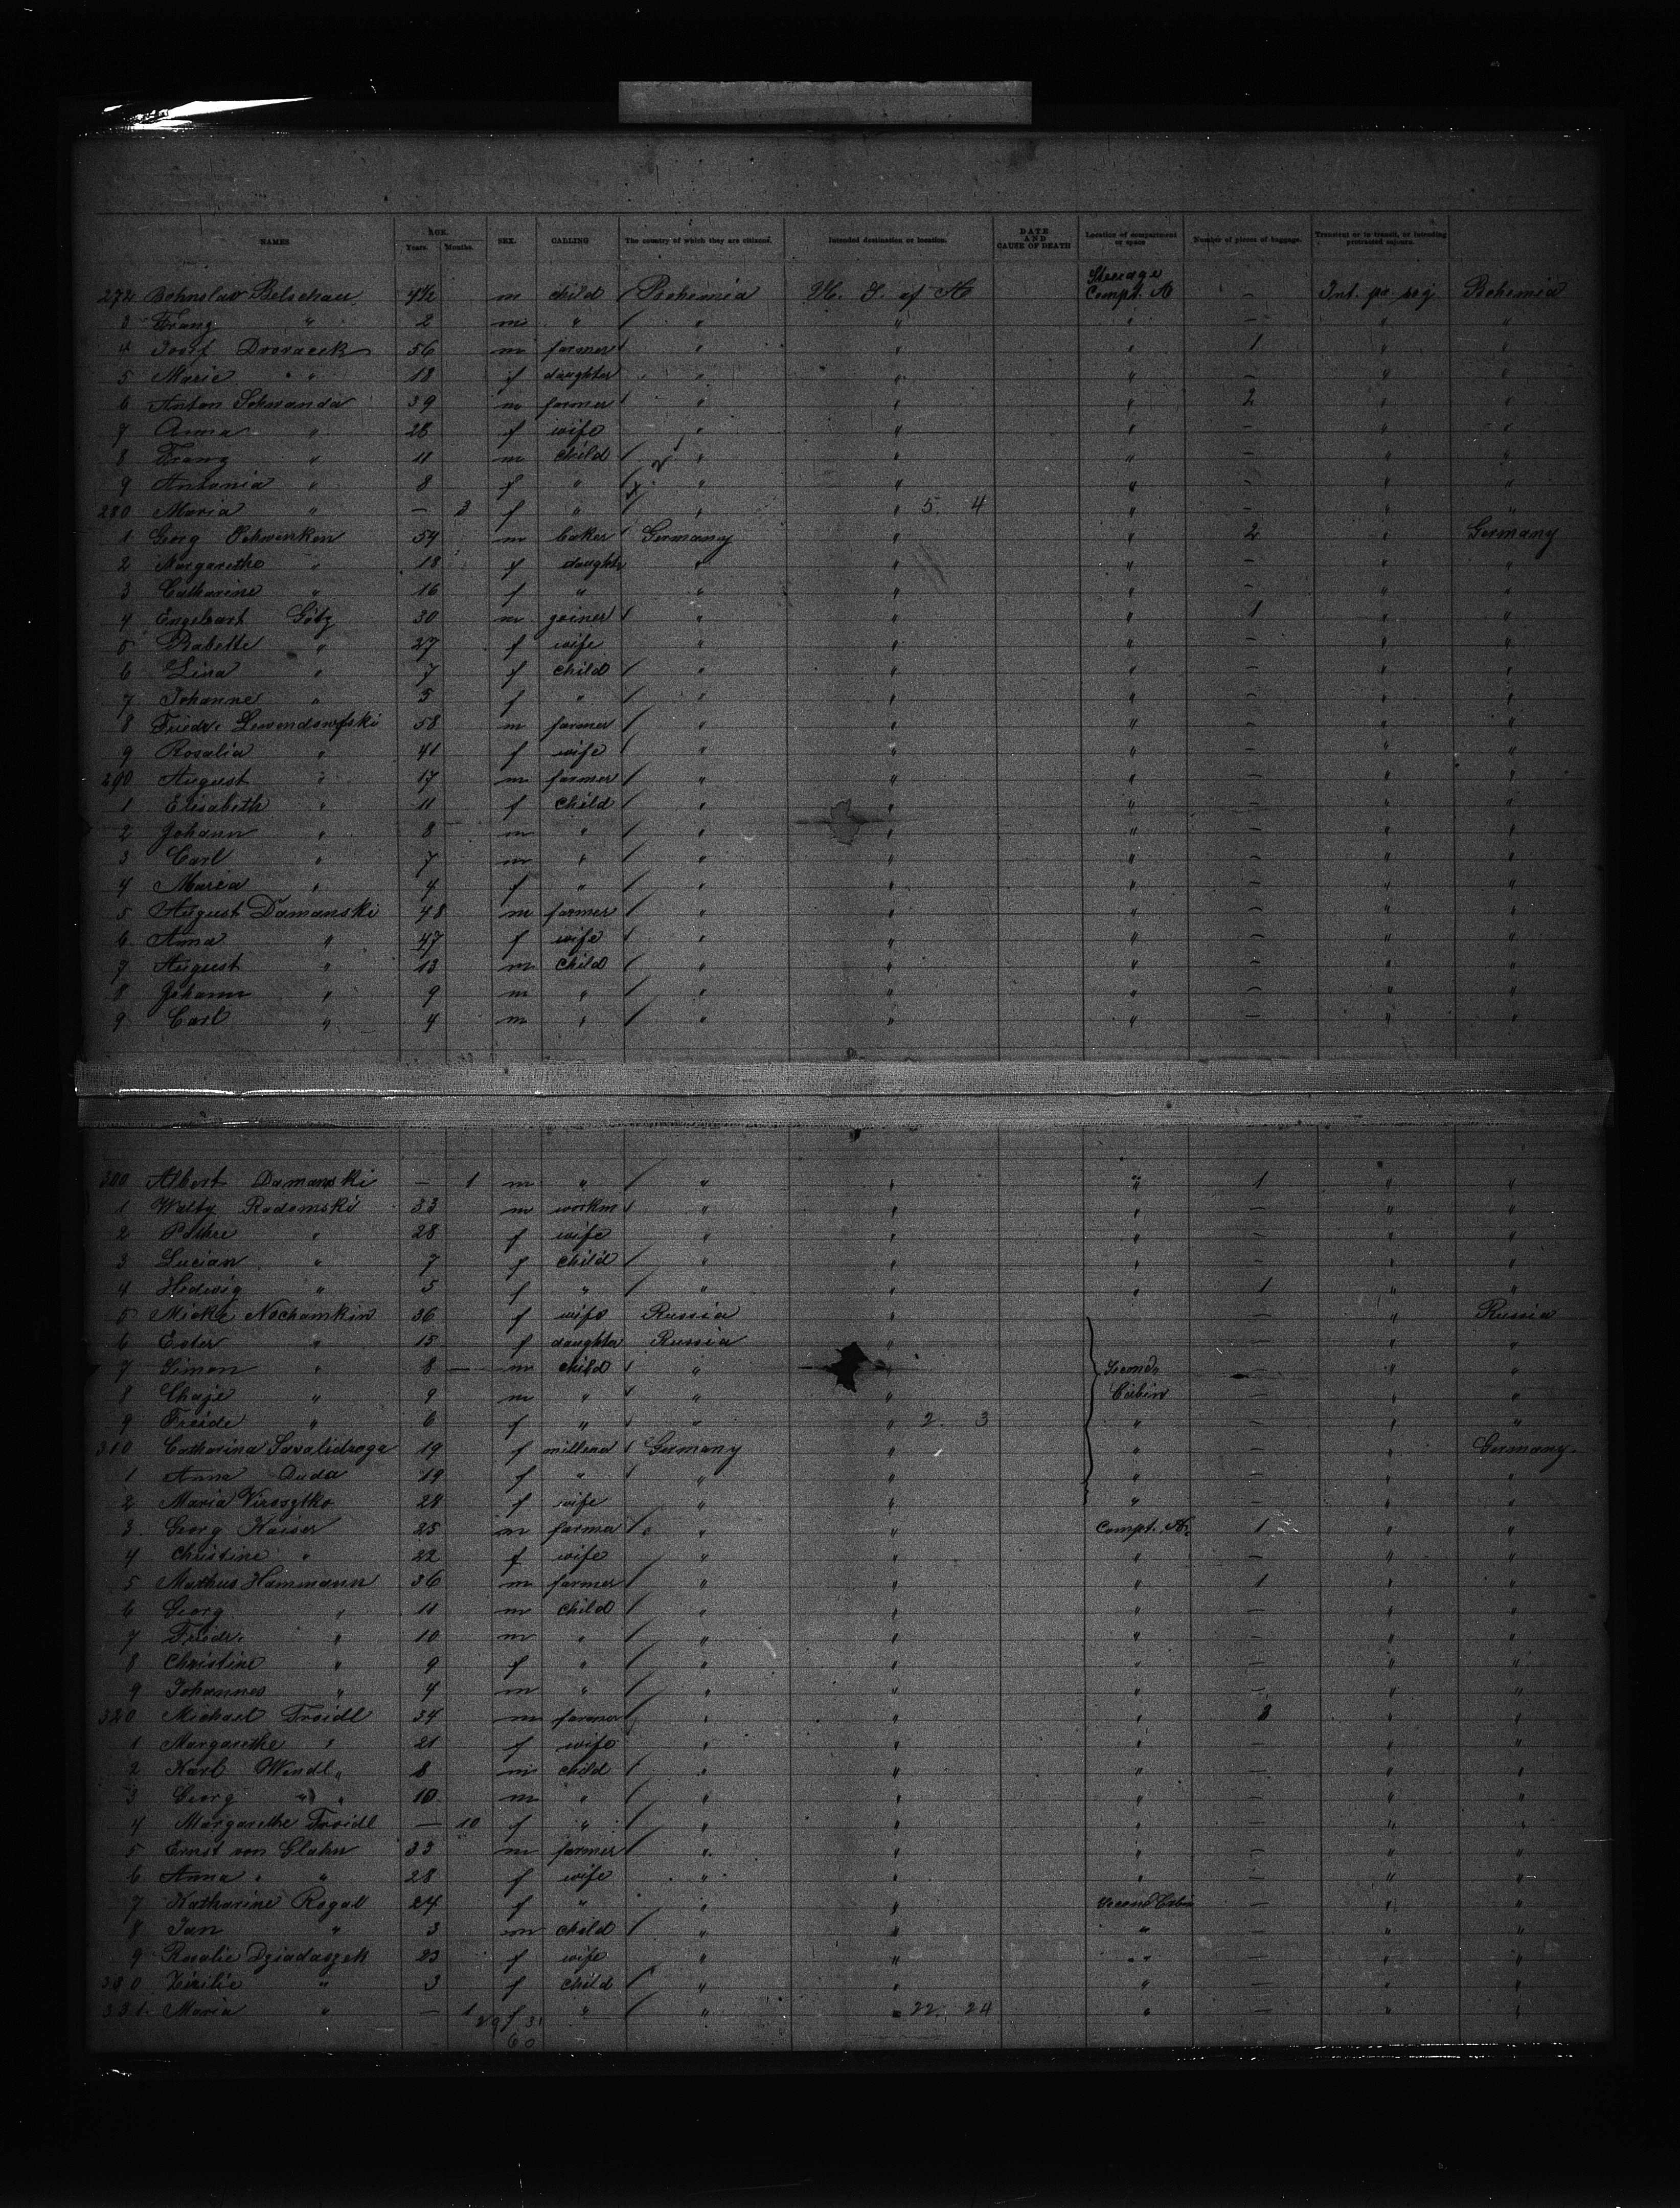 NAMES AGE. Years. Months. SEX. CALLING The country of which they are citizens. Intended destination or location. DATE AND CAUSE OF DEATH Location of compartment or space Number of pieces of baggage. Transient or in transit, or intending protracted sojourn.
Steerage
272 Bohuslav Belschau 4½ m child Bohemia U. S. of A Compt. A – Int. pr. soj Bohemia
3 Franz " 2 m " " " " – " "
4 Josef Dvoracek 56 m farmer " " " 1 " "
5 Marie " 18 f daughter " " " – " "
6 Anton Schwanda 39 m farmer " " " 2 " "
7 Anna " 28 f wife " " " – " "
8 Franz " 11 m child " " " – " "
9 Antonia " 8 f " " " " – " "
280 Maria " – 3 f " " " 5. 4 " – " "
1 Georg Schwenken 54 m baker Germany " " 2 " Germany
2 Margarethe " 18 f daughter " " " – " "
3 Catharine " 16 f " " " " – " "
4 Engelbart Götz 30 m joiner " " " 1 " "
5 Babette " 27 f wife " " " – " "
6 Lina " 7 f child " " " – " "
7 Johanne " 5 f " " " " – " "
8 Friedr. Lewendowski 58 m farmer " " " – " "
9 Rosalia " 41 f wife " " " – " "
290 August " 17 m farmer " " " – " "
1 Elisabeth " 11 f child " " " – " "
2 Johann " 8 m " " " " – " "
3 Carl " 7 m " " " " – " "
4 Maria " 4 f " " " " – " "
5 August Damanski 48 m farmer " " " – " "
6 Anna " 47 f wife " " " – " "
7 August " 13 m child " " " – " "
8 Johann " 9 m " " " " – " "
9 Carl " 4 m " " " " – " "
300 Albert Damanski – 1 m " " " " 1 " "
1 Radomski 33 m workm " " " – " "
2 " 28 f wife " " " – " "
3 Lucian " 7 f child " " " – " "
4 Hedwig " 5 f " " " " 1 " "
5 Micke Nochamkin 36 f wife Russia " – " Russia
6 Ester " 15 f daughter Russia " – " "
7 Simon " 8 m child " " Second – " "
8 Chaje " 9 m " " " Cabin – " "
9 Freide " 6 f " " " 2. 3 " – " "
310 Catharina 19 f Germany " " – " Germany
1 Anna Duda 19 f " " " " – " "
2 Maria 28 f wife " " " – " "
3 Georg Kaiser 25 m farmer " " Compt. A. 1 " "
4 Christine " 22 f wife " " " – " "
5 Mathus Hammann 36 m farmer " " " 1 " "
6 Georg " 11 m child " " " – " "
7 Friedr. " 10 m " " " " – " "
8 Christine " 9 f " " " " – " "
9 Johannes " 4 m " " " " – " "
320 Michael Troidl 34 m farmer " " " 3 " "
1 Margarethe " 21 f wife " " " – " "
2 Karl Wendl " 8 m child " " " – " "
3 Georg " " 10 m " " " " – " "
4 Margarethe Troidl – 10 f " " " " – " "
5 Ernst von Glahn 33 m farmer " " " – " "
6 Anna " " 28 f wife " " " – " "
7 Katharine Rogal 24 f " " " Second Cabin – " "
8 Jan " 3 m child " " " – " "
9 Rosalie Dziadaszek 23 f wife " " " – " "
330 " 3 f child " " " – " "
331. Maria " – 1 f " " " 22. 24 " – " "
29 31
60